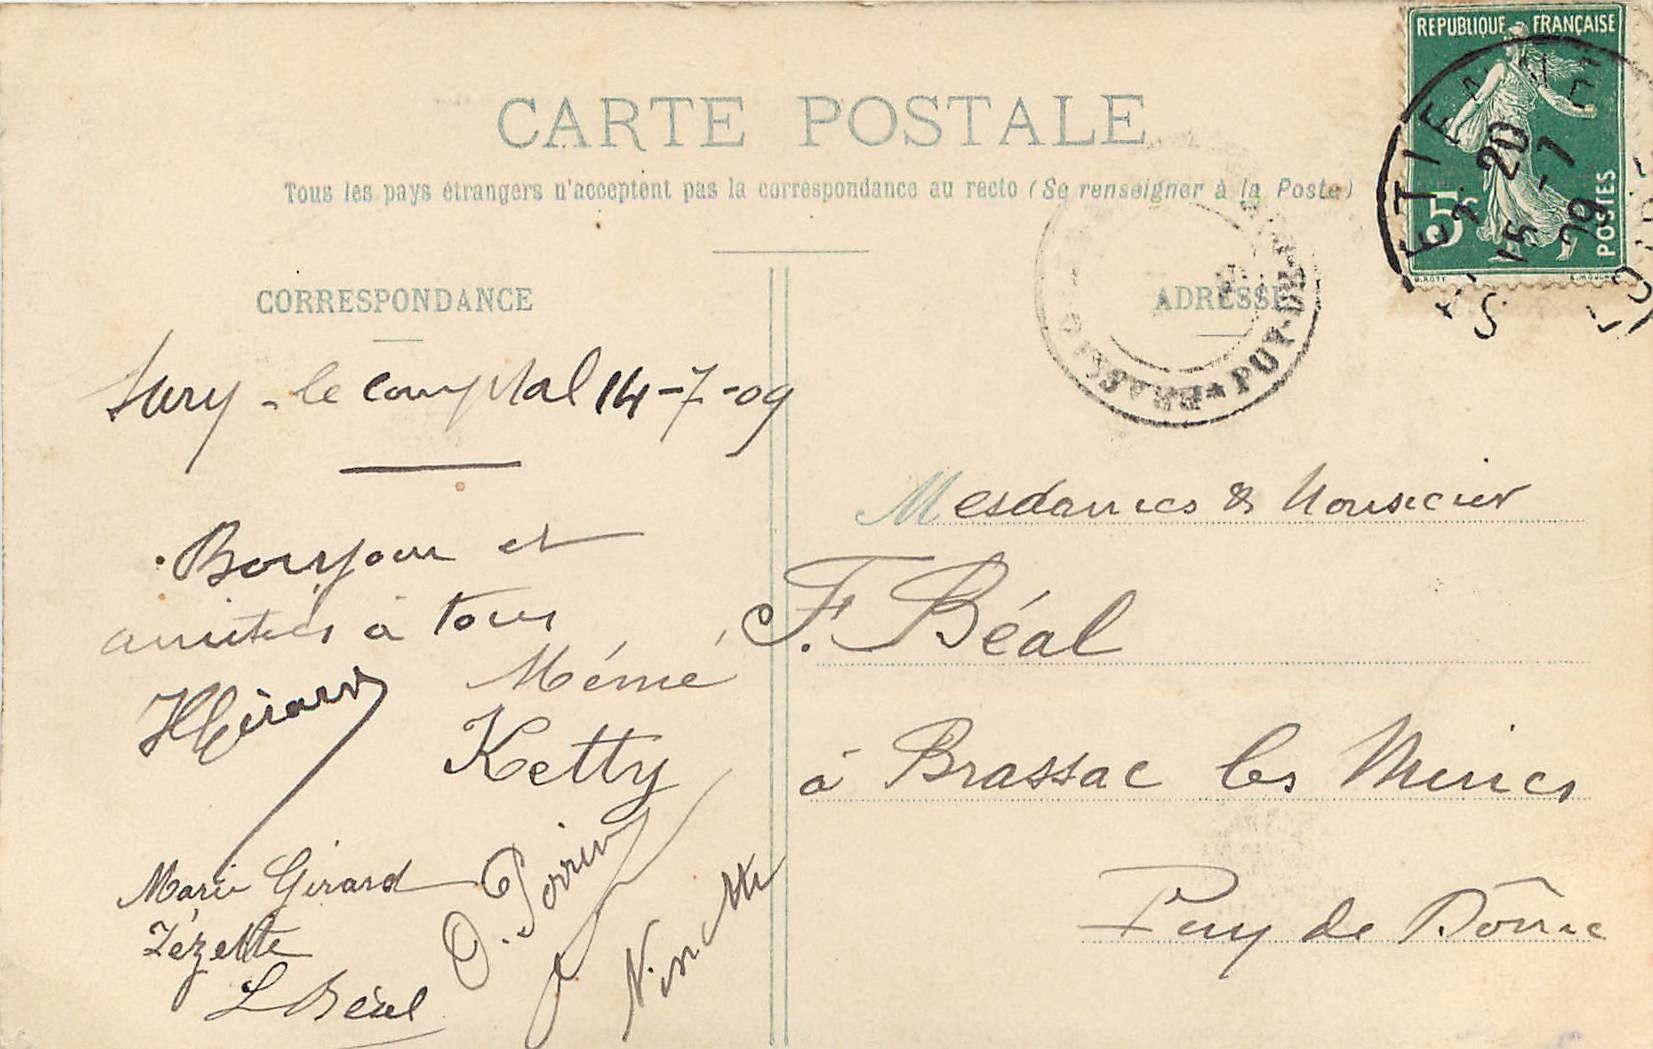 CARTE POSTALE
Tous les pays étrangers n'acceptent pas la correspondance au recto (Se renseigner à la Poste)
CORRESPONDANCE
Sury-le comptal 14-7-09
Bonjour et
amitiés à tous
HGirard
Mémé
Ketty
Marie Girard
Zézette
L Béal
O. Perrin
Ninette
ADRESSE
Mesdames & Monsieur
F. Béal
à Brassac les Mines
Puy de Dôme
REPUBLIQUE FRANÇAISE
5c
POSTES
ETIENNE
20
15 -7
09
LOIRE
BRASSAC
PUY-DE-